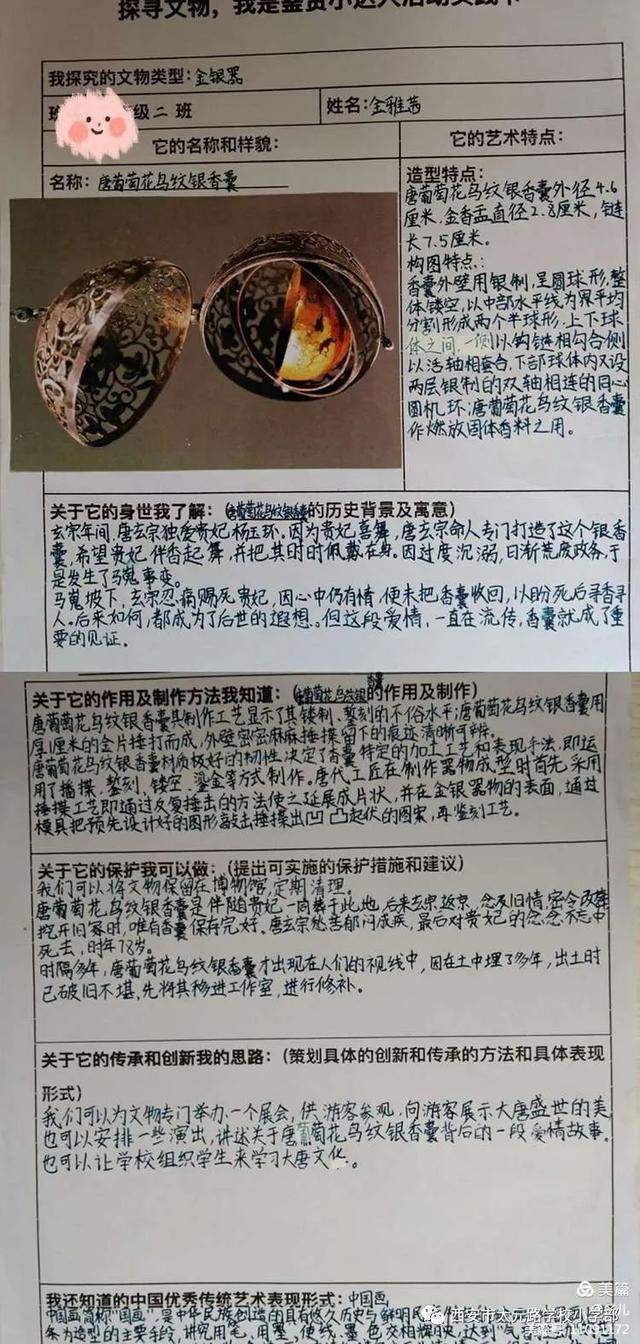 探寻文物，我是鉴赏小达人活动实践卡
我探究的文物类型：金银器
班 级二班
姓名：金雅茜
它的名称和样貌：
它的艺术特点：
名称：唐葡萄花鸟纹银香囊
造型特点：
唐葡萄花鸟纹银香囊外径4.6
厘米，金香盂直径2.8厘米，链
长7.5厘米。
构图特点：
香囊外壁用银制，呈圆球形，整
体镂空，以中部水平线为界平均
分割形成两个半球形，上下球
体之间，一侧以钩链相勾合，侧
以活轴相套合，下部球体内又设
两层银制的双轴相连的同心
圆机环；唐葡萄花鸟纹银香囊
作燃放固体香料之用。
关于它的身世我了解：（唐葡萄花鸟纹银香囊的历史背景及寓意）
玄宗年间，唐玄宗独爱贵妃杨玉环。因为贵妃喜舞，唐玄宗命人专门打造了这个银香
囊，希望贵妃伴香起舞，并把其时时佩戴在身。因过度沉溺，日渐荒废政务，于
是发生了马嵬事变。
马嵬坡下，玄宗忍痛赐死贵妃，因心中仍有情，便未把香囊收回，以盼死后寻香寻
人。后来如何，都成为了后世的遐想。但这段爱情，一直在流传，香囊就成了重
要的见证。
关于它的作用及制作方法我知道：（唐葡萄花鸟纹银香囊的作用及制作）
唐葡萄花鸟纹银香囊其制作工艺显示了其镂制、錾刻的不俗水平；唐葡萄花鸟纹银香囊用
厚1厘米的金片捶打而成，外壁密密麻麻捶揲留下的痕迹清晰可辨。
唐葡萄花鸟纹银香囊材质极好的韧性，决定了香囊特定的加工艺和表现手法，即运
用了捶揲、錾刻、镂空、鎏金等方式制作。唐代工匠在制作器物成型时首先采用
捶揲工艺即通过反复捶击的方法使之延展成片状，并在金银器物的表面，通过
模具把预先设计好的图形敲击捶揲出凹凸起伏的图案，再鉴刻工艺。
关于它的保护我可以做：（提出可实施的保护措施和建议）
我们可以将文物保留在博物馆，定期清理。
唐葡萄花鸟纹银香囊是伴随贵妃一同葬于此地，后来玄宗返京，念及旧情，密令改葬
挖开旧冢时，唯有香囊保存完好。唐玄宗愁苦郁闷成疾，最后对贵妃的念念不忘中
死去，时年78岁。
时隔多年，唐葡萄花鸟纹银香囊才出现在人们的视线中，因在土中埋了多年，出土时
已破旧不堪，先将其移进工作室，进行修补。
关于它的传承和创新我的思路：（策划具体的创新和传承的方法和具体表现
形式）
我们可以为文物专门举办一个展会，供游客参观，向游客展示大唐盛世的美，
也可以安排一些演出，讲述关于唐葡萄花鸟纹银香囊背后的一段爱情故事。
也可以让学校组织学生来学习大唐文化。
我还知道的中国优秀传统艺术表现形式：中国画
中国画简称"国画"，是中华民族创造的具有悠久历史与鲜明民族
条为造型的主要手段，讲究用笔、用墨，使
美篇
西安市太元路学校小学部